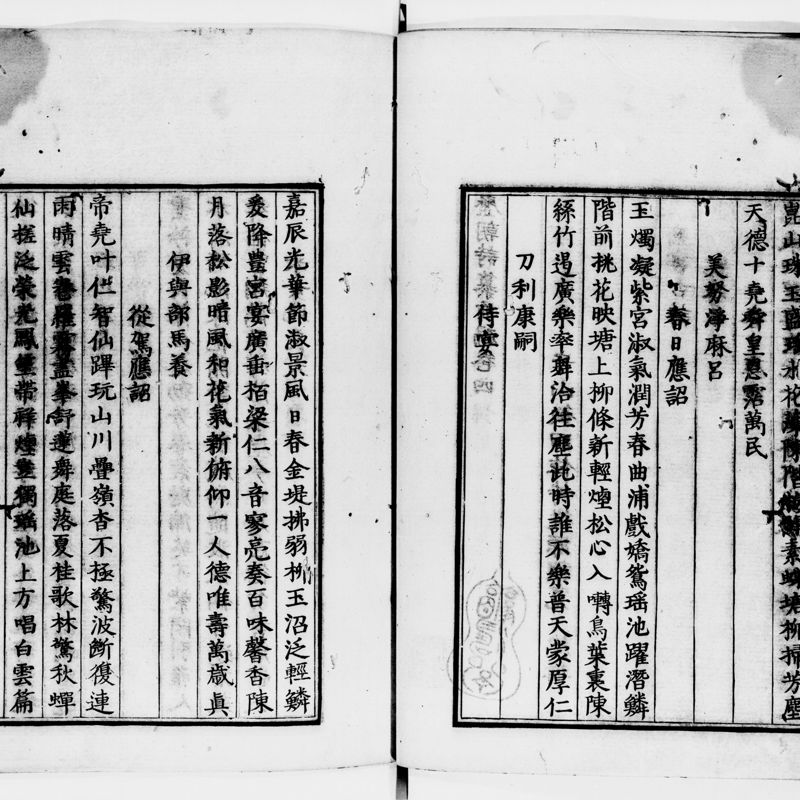 崑山珠玉盛瑤水花藻陳階梅鬪素蝶塘柳掃芳塵
天德十堯舜皇恩霑萬民
美努淨麻呂
春日應詔
玉燭凝紫宮淑氣潤芳春曲浦戲嬌鴛瑶池躍潛鱗
階前桃花映塘上柳條新輕煙松心入囀鳥葉裏陳
絲竹遏廣樂率舞洽往塵此時誰不樂普天蒙厚仁
刀利康嗣
侍宴
嘉辰光華節淑景風日春金堤拂弱柳玉沼泛輕鱗
爰降豊宮宴廣垂栢梁仁八音寥亮奏百味馨香陳
月落松影暗風和花氣新俯仰一人德唯壽萬歳真
伊與部馬養
從駕應詔
帝堯叶仁智仙蹕玩山川疊嶺杳不極驚波斷復連
雨晴雲卷羅霧盡峯舒蓮舞庭落夏桂歌林驚秋蟬
仙槎泛榮光鳳笙帶祥煙豈獨瑶池上方唱白雲篇